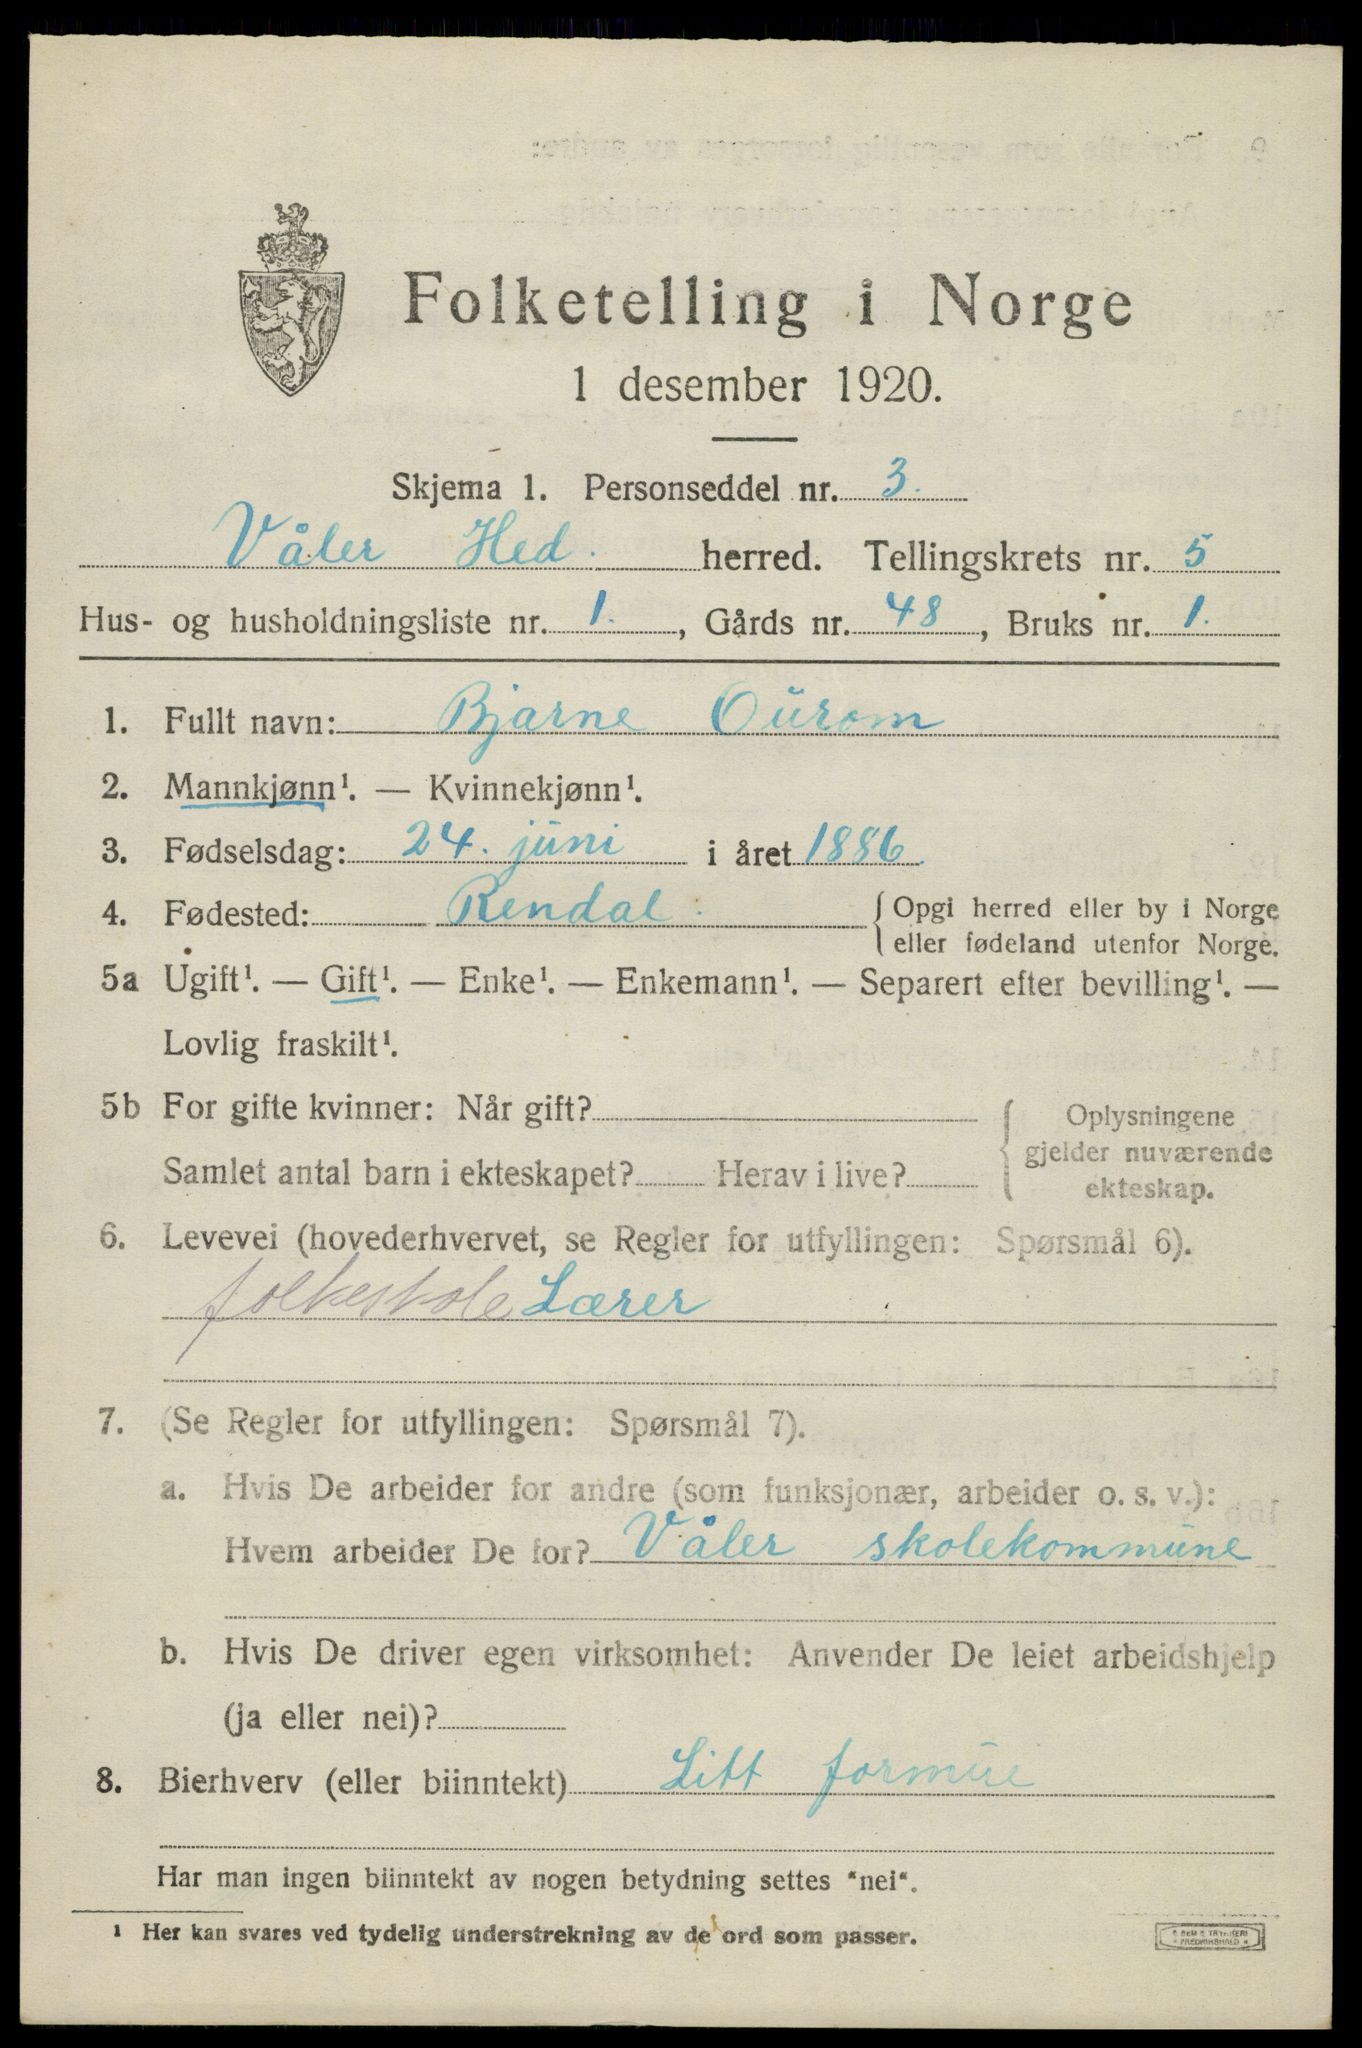 Folketelling i Norge
1 desember 1920.
Skjema 1. Personseddel nr. 3.
Våler Hed. herred. Tellingskrets nr. 5
Hus- og husholdningsliste nr. 1., Gårds nr. 48, Bruks nr. 1.
1. Fullt navn: Bjarne Ourom
2. Mannkjønn¹. — Kvinnekjønn¹.
3. Fødselsdag: 24. juni i året 1886.
4. Fødested: Rendal. { Opgi herred eller by i Norge
eller fødeland utenfor Norge.
5a Ugift¹. — Gift¹. — Enke¹. — Enkemann¹. — Separert efter bevilling¹. —
Lovlig fraskilt¹.
5b For gifte kvinner: Når gift?
Samlet antal barn i ekteskapet? Herav i live?
{ Oplysningene
gjelder nuværende
ekteskap.
6. Levevei (hovederhvervet, se Regler for utfyllingen: Spørsmål 6).
folkeskole Lærer
7. (Se Regler for utfyllingen: Spørsmål 7).
a. Hvis De arbeider for andre (som funksjonær, arbeider o. s. v.):
Hvem arbeider De for? Våler skolekommune
b. Hvis De driver egen virksomhet: Anvender De leiet arbeidshjelp
(ja eller nei)?
8. Bierhverv (eller biinntekt) Litt formue
Har man ingen biinntekt av nogen betydning settes "nei".
¹ Her kan svares ved tydelig understrekning av de ord som passer.